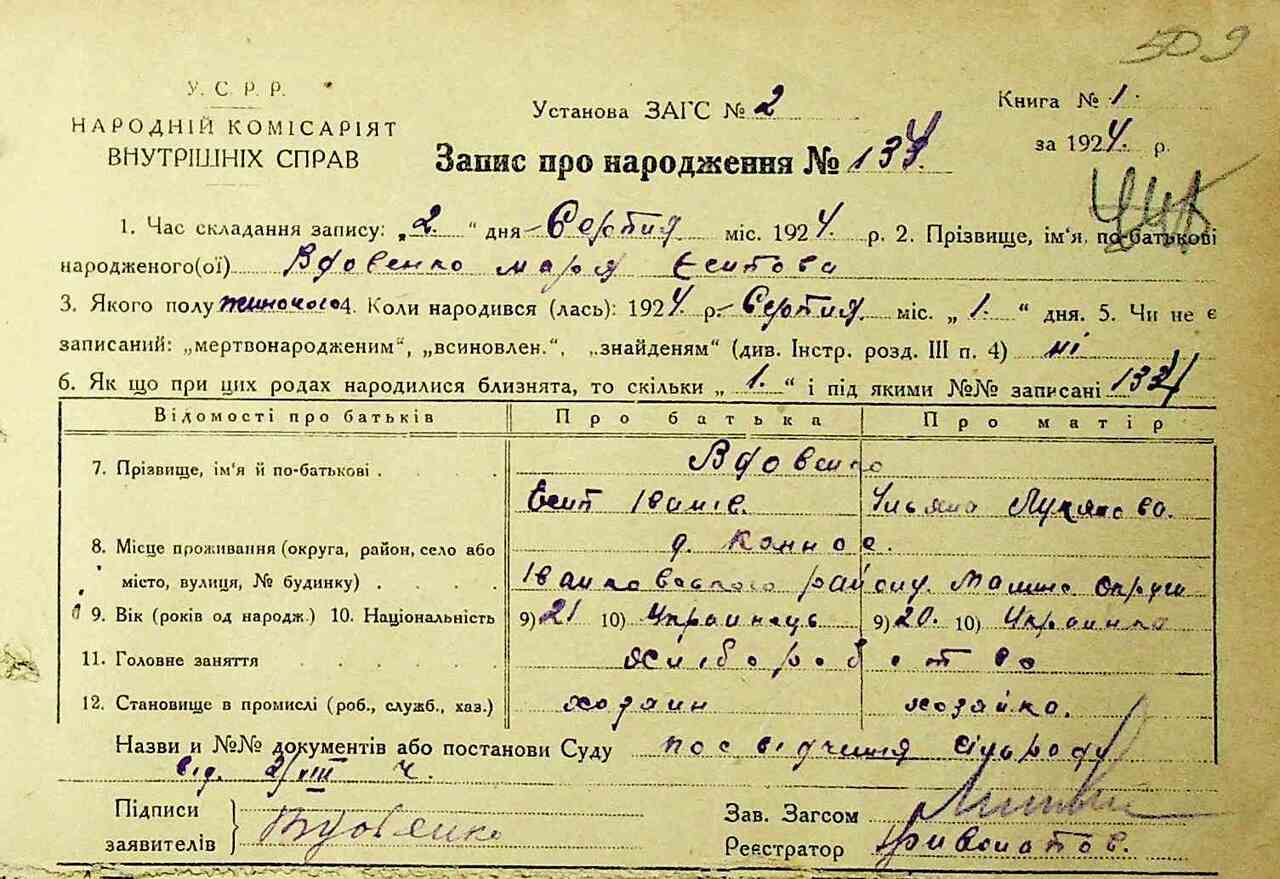 509
У. С. Р. Р.
НАРОДНІЙ КОМІСАРІЯТ
ВНУТРІШНІХ СПРАВ
Установа ЗАГС № 2
Книга № 1.
за 1924. р.
Запис про народження № 134.
1. Час складання запису: „2.“ дня Серпня міс. 1924. р. 2. Прізвище, ім'я, по-батькові
народженого(ої) Вдовенко Марія Єсипова
3. Якого полу жиночого 4. Коли народився (лась): 1924. р. Серпня міс. „1.“ дня. 5. Чи не є
записаний: „мертвонародженим“, „всиновлен.“, „знайденям“ (див. Інстр. розд. III п. 4) ні
6. Як що при цих родах народилися близнята, то скільки „1.“ і під якими №№ записані
Відомості про батьків Про батька Про матір
7. Прізвище, ім'я й по-батькові . . . . Вдовенко
Єсип Іванів. Ульяна Лукянова.
8. Місце проживання (округа, район, село або д. Конное.
місто, вулиця, № будинку) . . . . Іванковського району. Малинс округи
9. Вік (років од народж.) 10. Національність 9) 21 10) Украинець 9) 20. 10) Украинка
11. Головне заняття . . . . . Хліборобство
12. Становище в промислі (роб., служб., хаз.) хозаин хозяйка.
Назви и №№ документів або постанови Суду посвідчення сільраду
від. 2/VIII
Підписи
заявителів Вдовенко
Зав. Загсом
Реєстратор